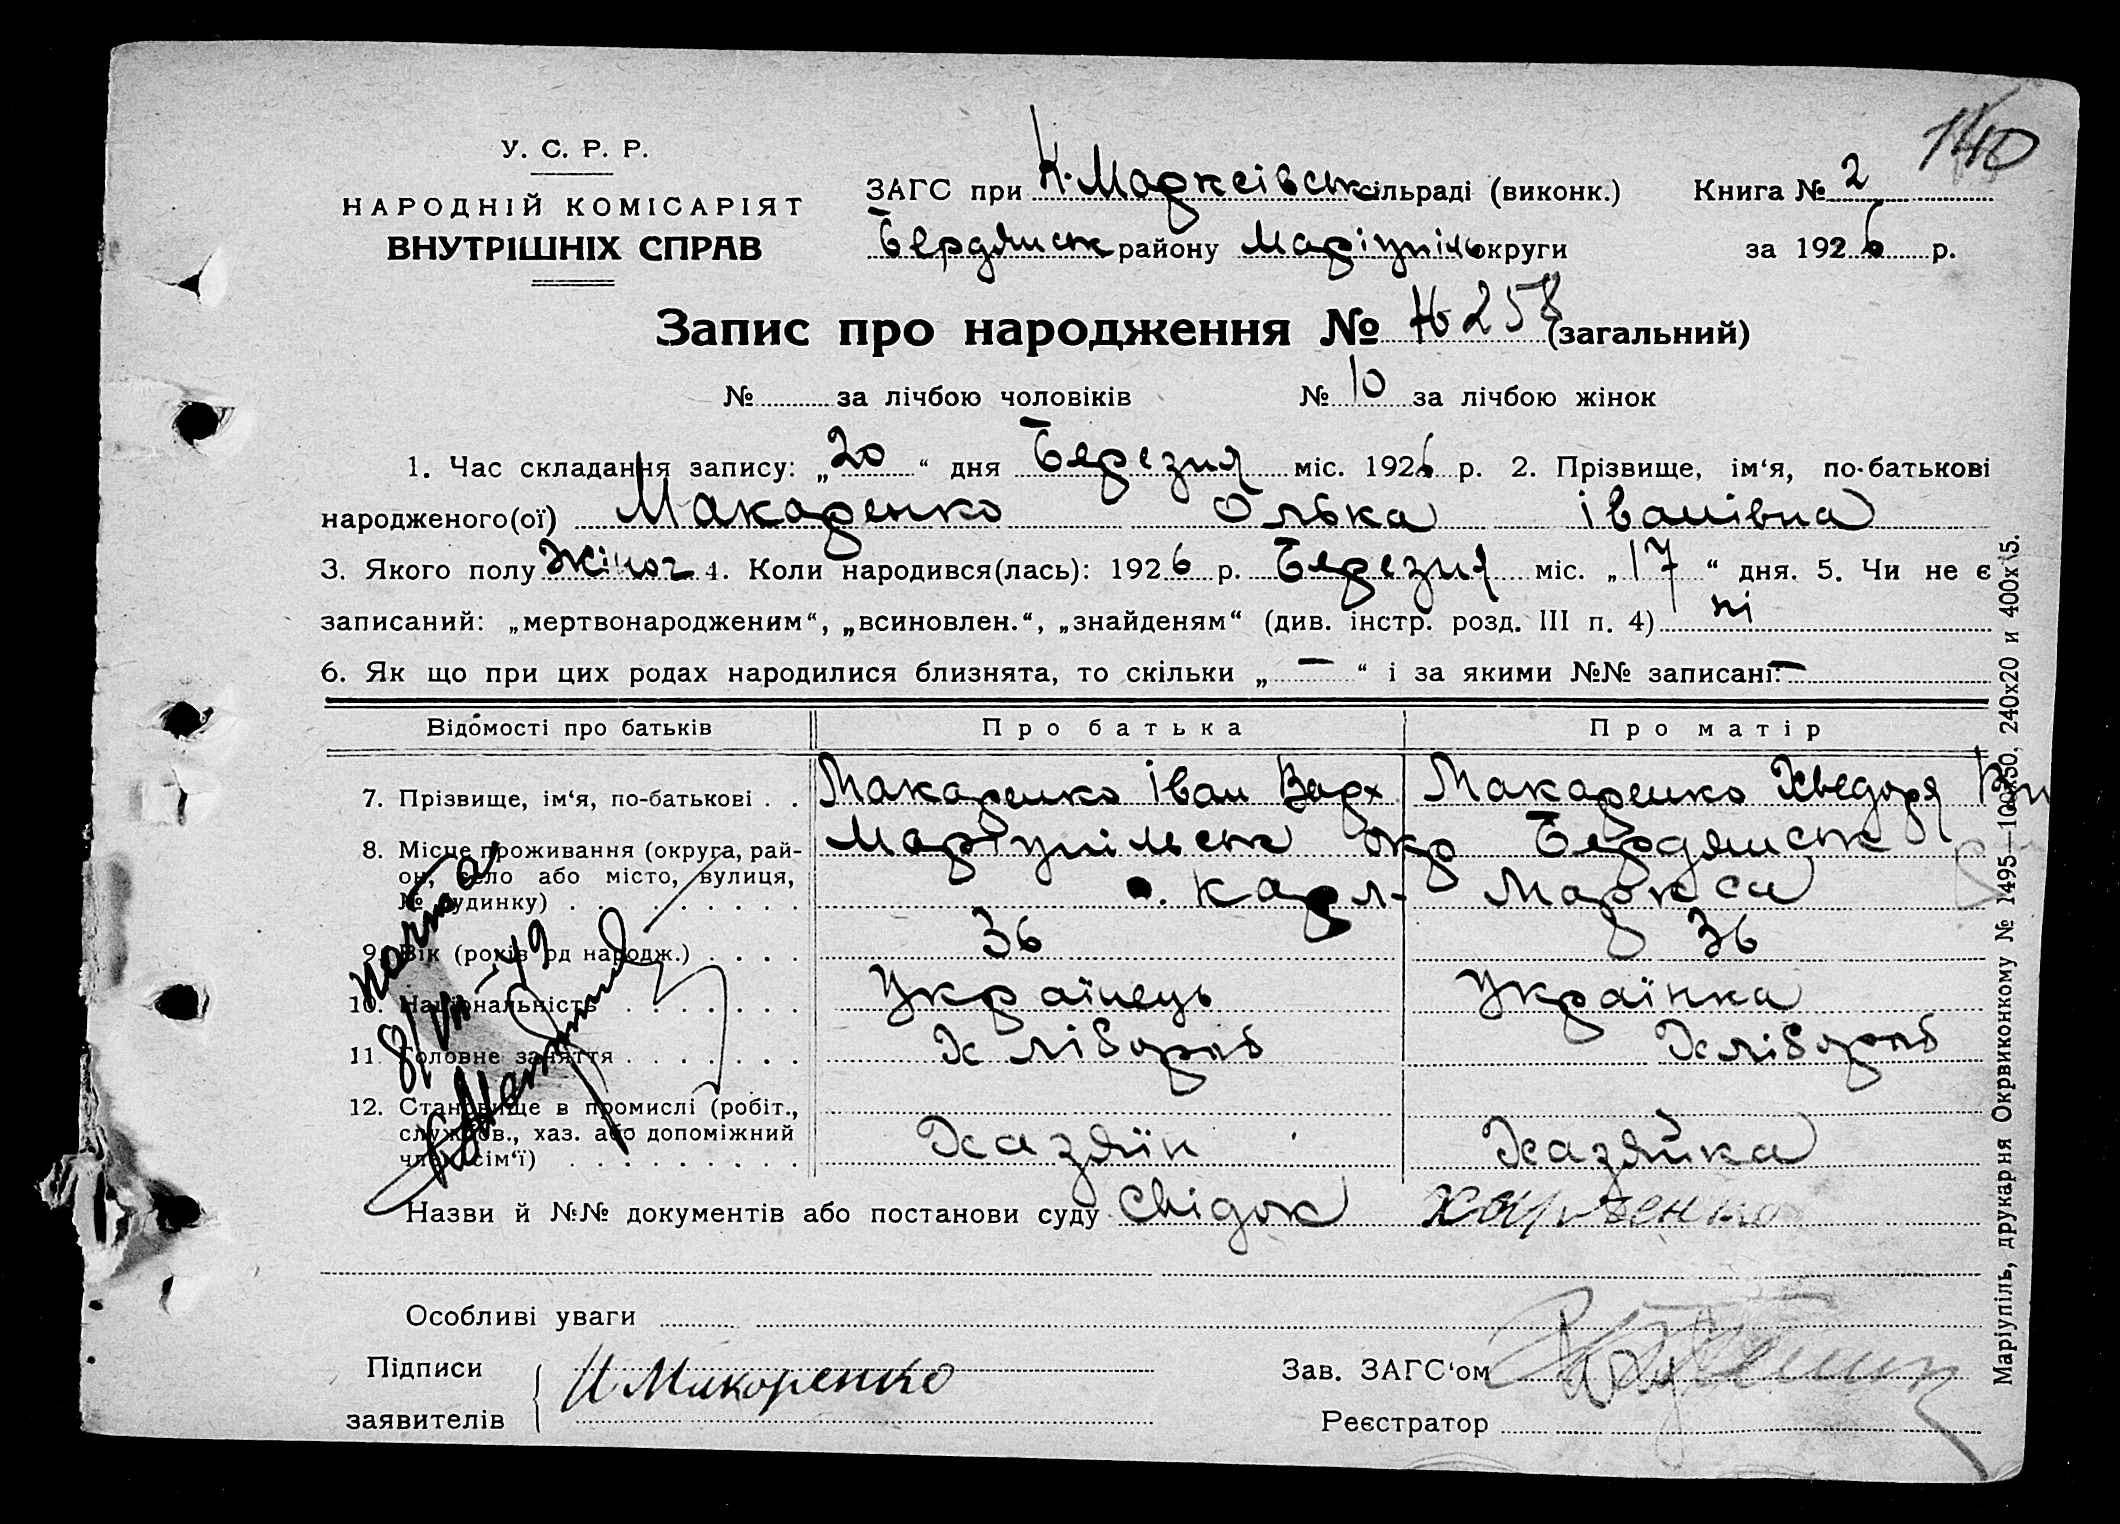 140
У. С. Р. Р.
НАРОДНІЙ КОМІСАРІЯТ
ВНУТРІШНІХ СПРАВ
ЗАГС при К. Марксівськ сільраді (виконк.) Книга № 2
Бердянськ району Маріупільо округи за 1926 р.
Запис про народження № № 258 (загальний)
№ за лічбою чоловіків № 10 за лічбою жінок
1. Час складання запису: „20“ дня Березня міс. 1926 р. 2. Прізвище, ім‘я, по-батькові
народженого(ої) Макаренко Олька іванівна
3. Якого полу Жіноч 4. Коли народився(лась): 1926 р. Березня міс. „17“ дня. 5. Чи не є
записаний: „мертвонародженим“, „всиновлен.“, „знайденям“ (див. інстр. розд. III п. 4) ні
6. Як що при цих родах народилися близнята, то скільки „ — “ і за якими №№ записані: —
Відомості про батьків Про батька Про матір
7. Прізвище, ім‘я, по-батькові . . Макаренко іван Варх Макаренко Хведоря
8. Місце проживання (округа, рай-
он, село або місто, вулиця,
№ будинку) . . . . . . . . .
Маріупільськ окр Бердянськ
с. Карл-Маркса
9. Вік (років од народж.) . . . . 36 36
10. Національність . . . . . . . Українець Українка
11. Головне заняття . . . . . . . Хлібороб Хлібороб
12. Становище в промислі (робіт.,
службов., хаз. або допоміжний
член сім‘ї) . . . . . . . . . Хазяїн Хазяйка
8/VII-49
Назви й №№ документів або постанови суду Свідок Харченко
Особливі уваги
Підписи
заявителів
И Макоренко
Зав. ЗАГС‘ом
Реєстратор
Маріупіль, друкарня Окрвиконкому № 1495—100х50, 240х20 и 400х15.